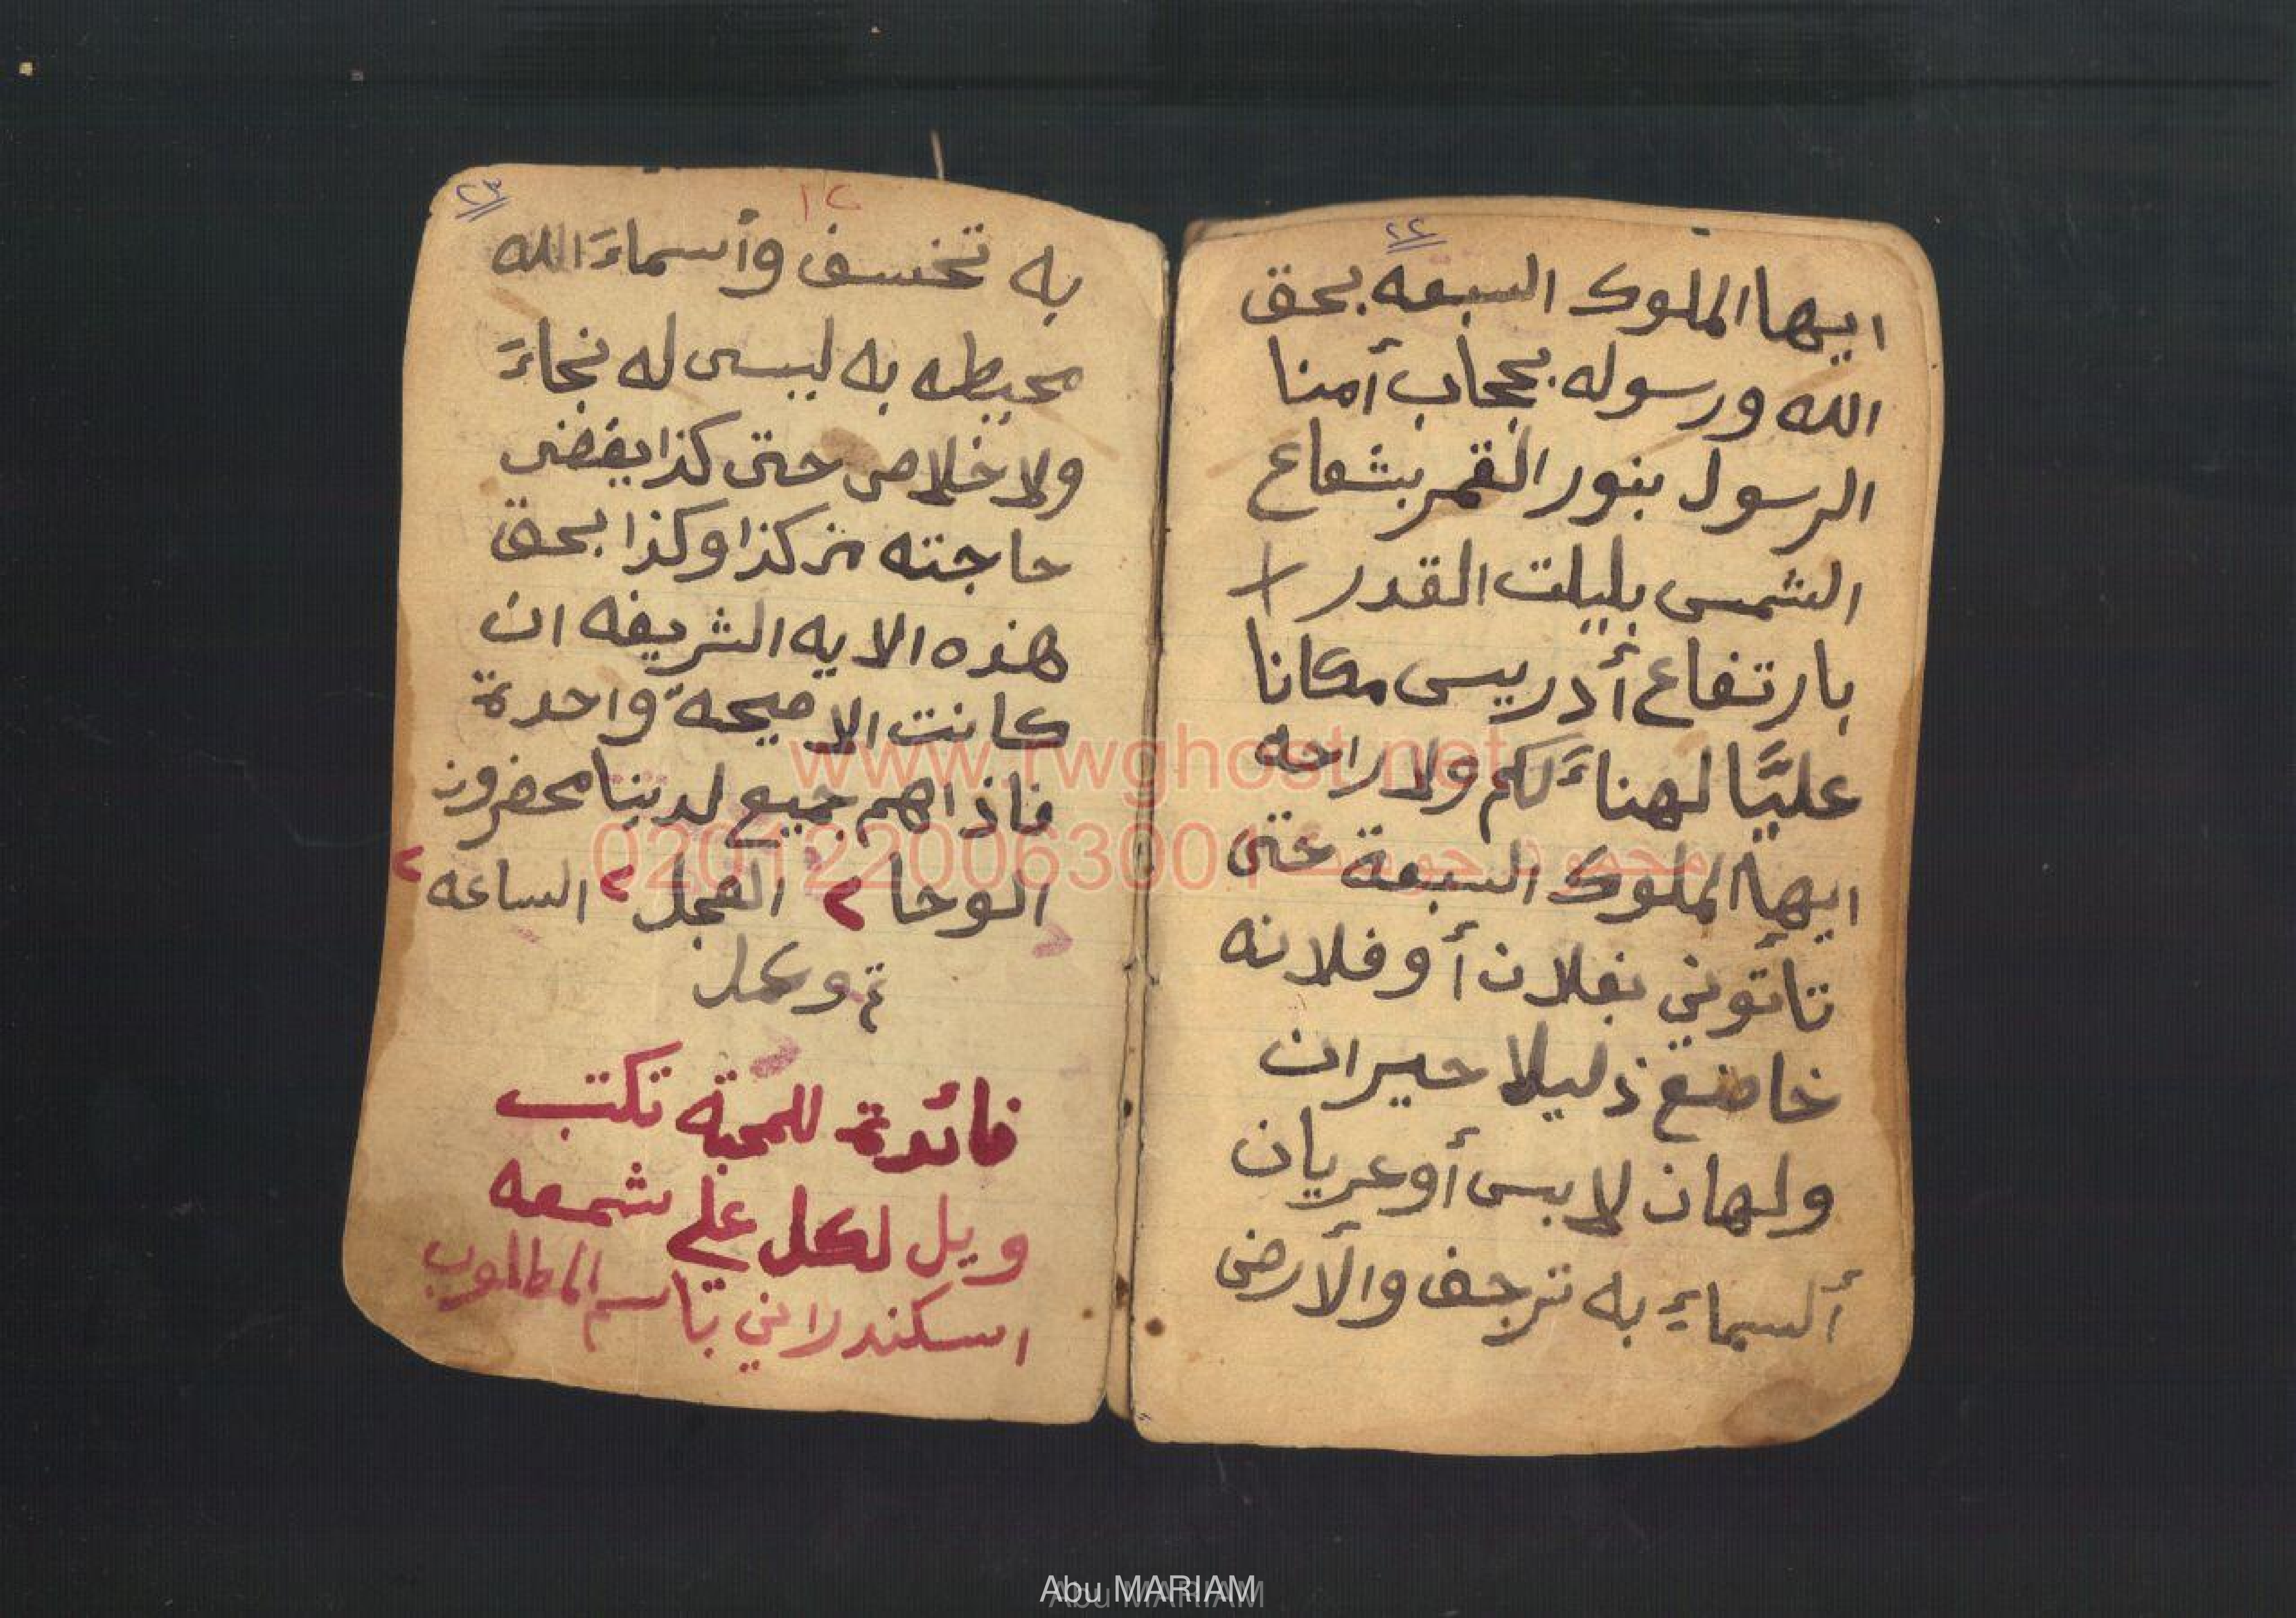 ٢٢
ايها الملوك السبعه بحق
الله ورسوله بحجاب أمنا
الرسول بنور القمر بشعاع
الشمس بليلت القدر
بارتفاع أدريس مكانا
عليًّا لهناءَ لكم ولا راحه
ايها الملوك السبعة حتى
تأتوني بفلان أو فلانه
خاضع ذليلا حيران
ولهان لابس أو عريان
ألسماءِ به ترجف والأرض
٢٣
١٢
به تخسف وأسماءَ الله
محيطه به ليس له نجاءَ
ولا خلاص حتى كذا يقضى
حاجته من كذا وكذا بحق
هذه الايه الشريفه ان
كانت الا صيحة واحدة
فاذا هم جميع لدينا محضرون
الوحا ٢ العجل ٢ الساعه ٢
تم وكمل
فائدة للمحبة تكتب
ويل لكل على شمعه
اسكندراني باسم المطلوب
www.rwghost.net
02012220063001
Abu MARIAM